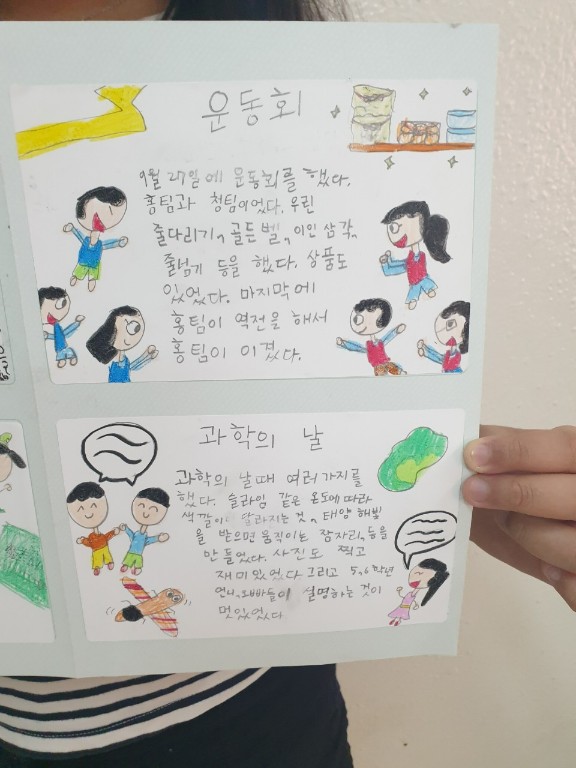 운동회
9월 27일에 운동회를 했다.
홍팀과 청팀이었다. 우린
줄다리기, 골든벨, 이인 삼각,
줄넘기 등을 했다. 상품도
있었다. 마지막에
홍팀이 역전을 해서
홍팀이 이겼다.
과학의 날
과학의 날때 여러가지를
했다. 슬라임 같은 온도에 따라
색깔이 달라지는 것, 태양 해빛
을 받으면 움직이는 잠자리, 등을
만들었다. 사진도 찍고
재미있었다 그리고 5,6학년
언니, 오빠들이 설명하는 것이
멋있었다